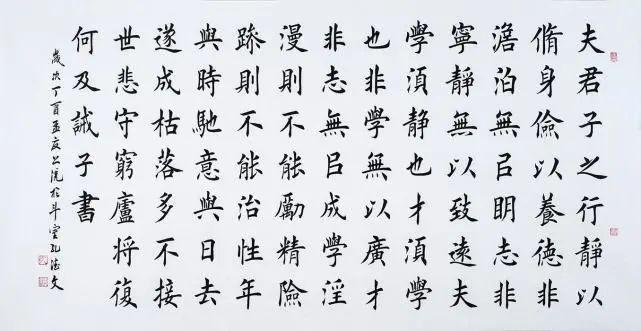 夫君子之行靜以
脩身儉以養德非
澹泊無㠯眀志非
寧靜無以致遠夫
學須靜也才須學
也非學無以廣才
非志無㠯成學淫
漫則不能勵精險
躁則不能治性年
與時馳意與日去
遂成枯落多不接
世悲守窮廬将復
何及誡子書
歲次丁酉孟夏上浣於斗室孔文